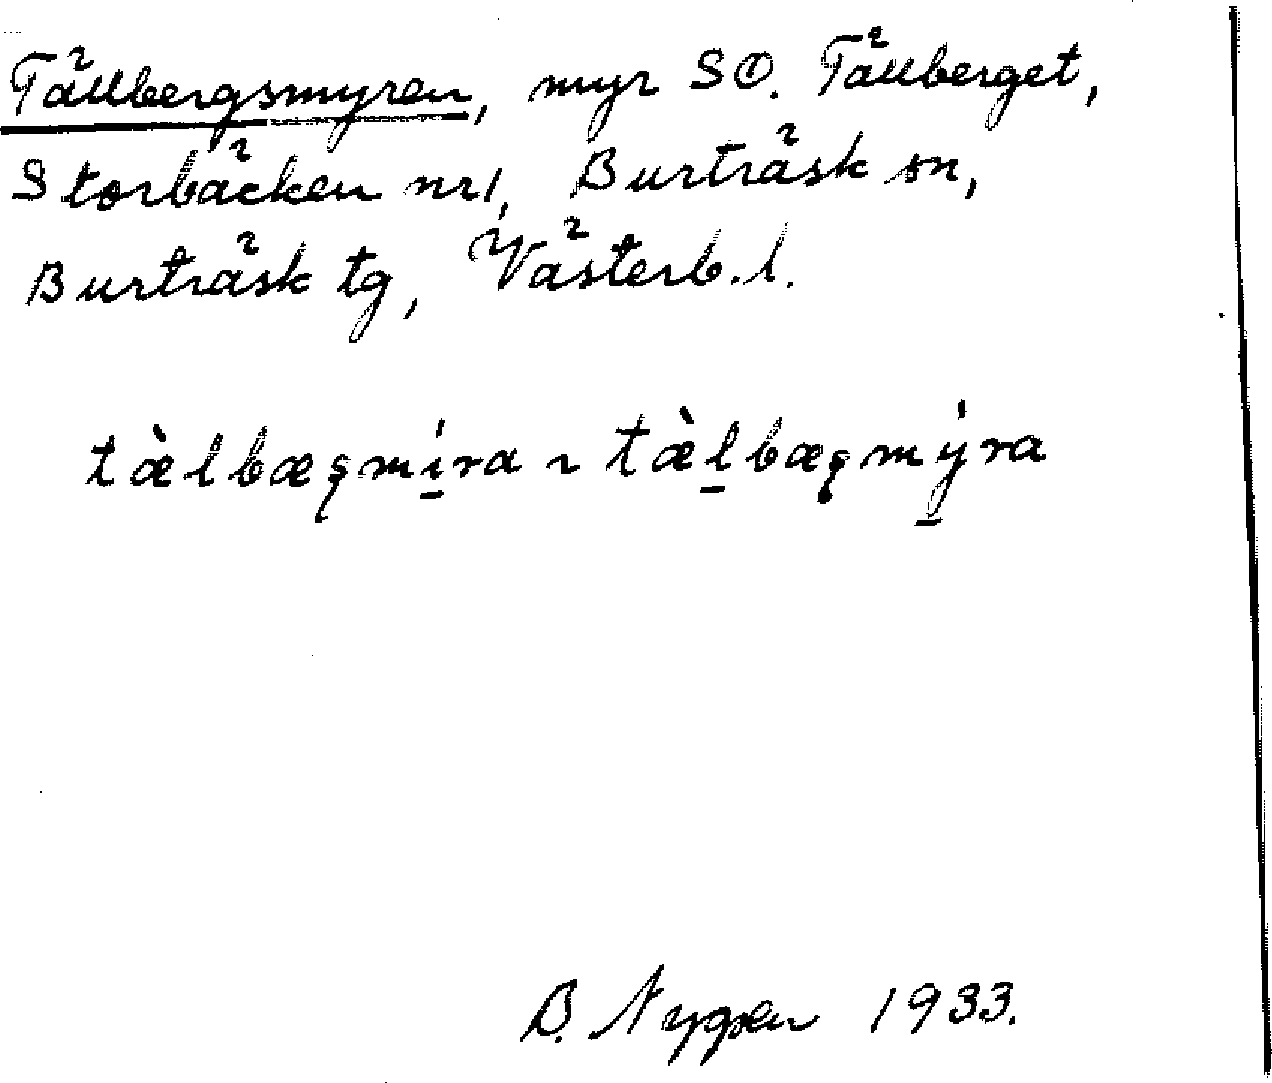 Tällbergsmyren, myr SO. Tällberget,
Storbäcken nr 1, Burträsk sn,
Burträsk tg, Västerb. l.
tæ̀lbæqmí̱ra ~ tæ̀ḻbæqmý̱ra
B. Nygren 1933.